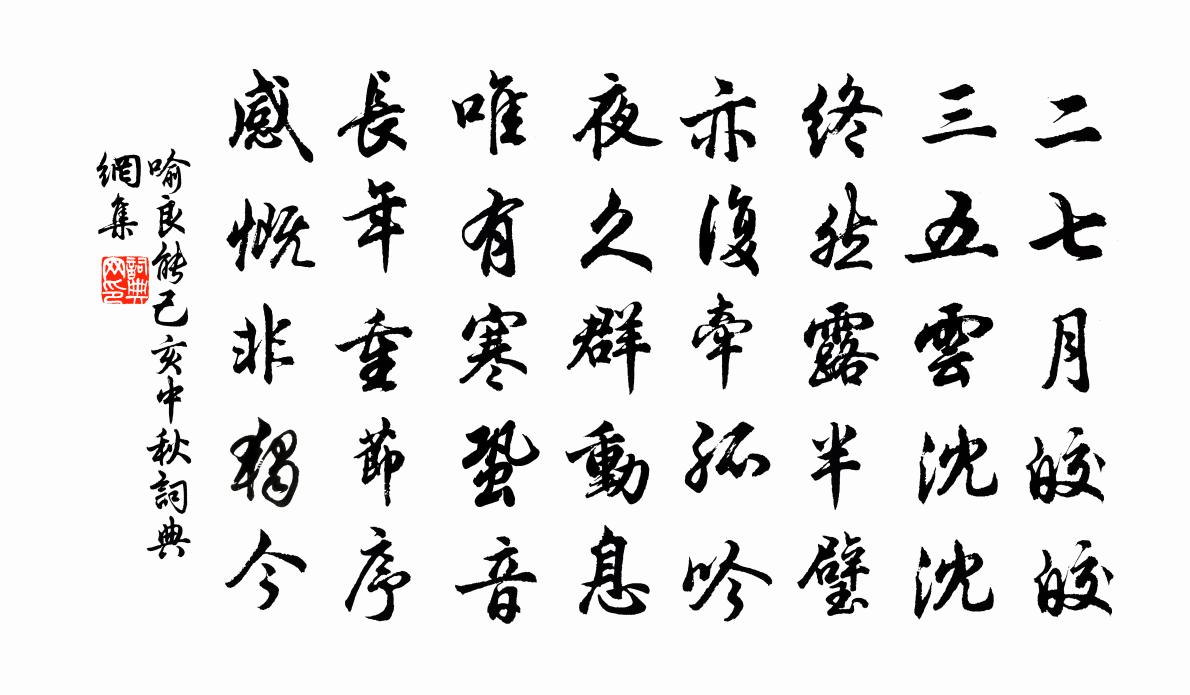 二七月皎皎
三五雲沈沈
終然露半璧
亦復牽孤吟
夜久群動息
唯有寒蛩音
長年重節序
感慨非獨今
喻良能己亥中秋詞典
網集
詞典網印